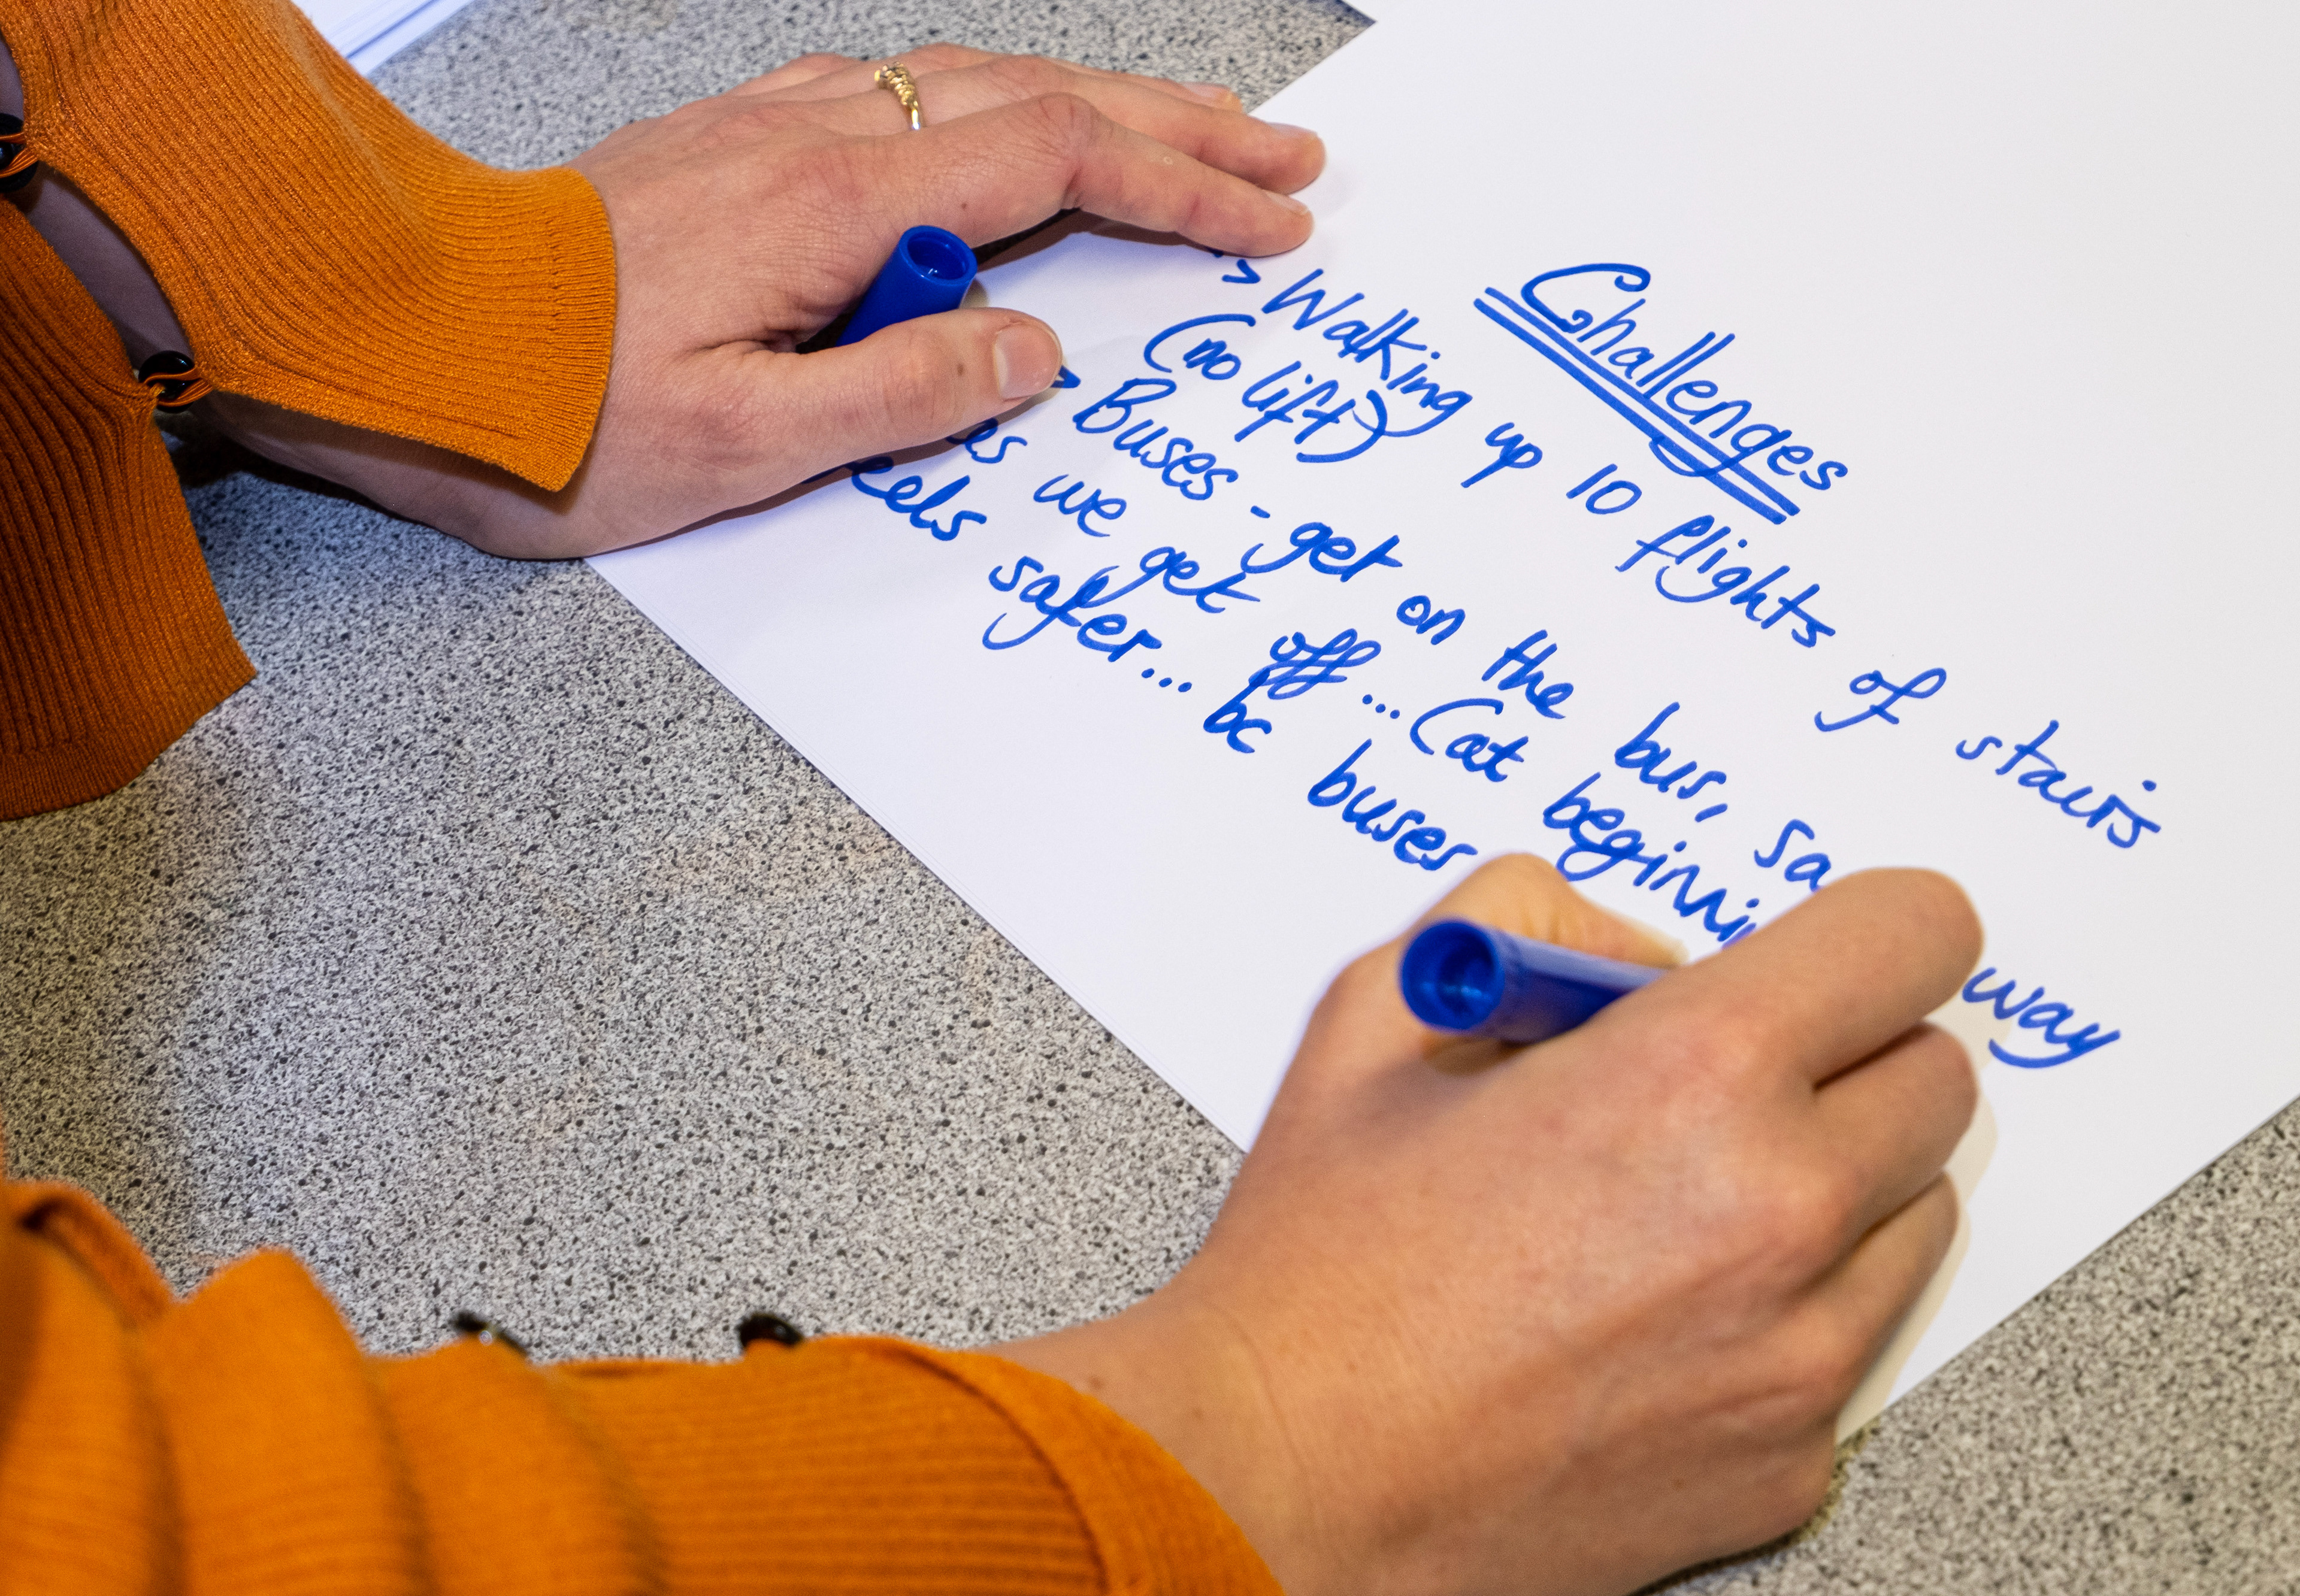 Challenges
> Walking up 10 flights of stairs
(no lift)
Buses - get on the bus, sa way
we get off... (at beginni
eels safer... bc buses